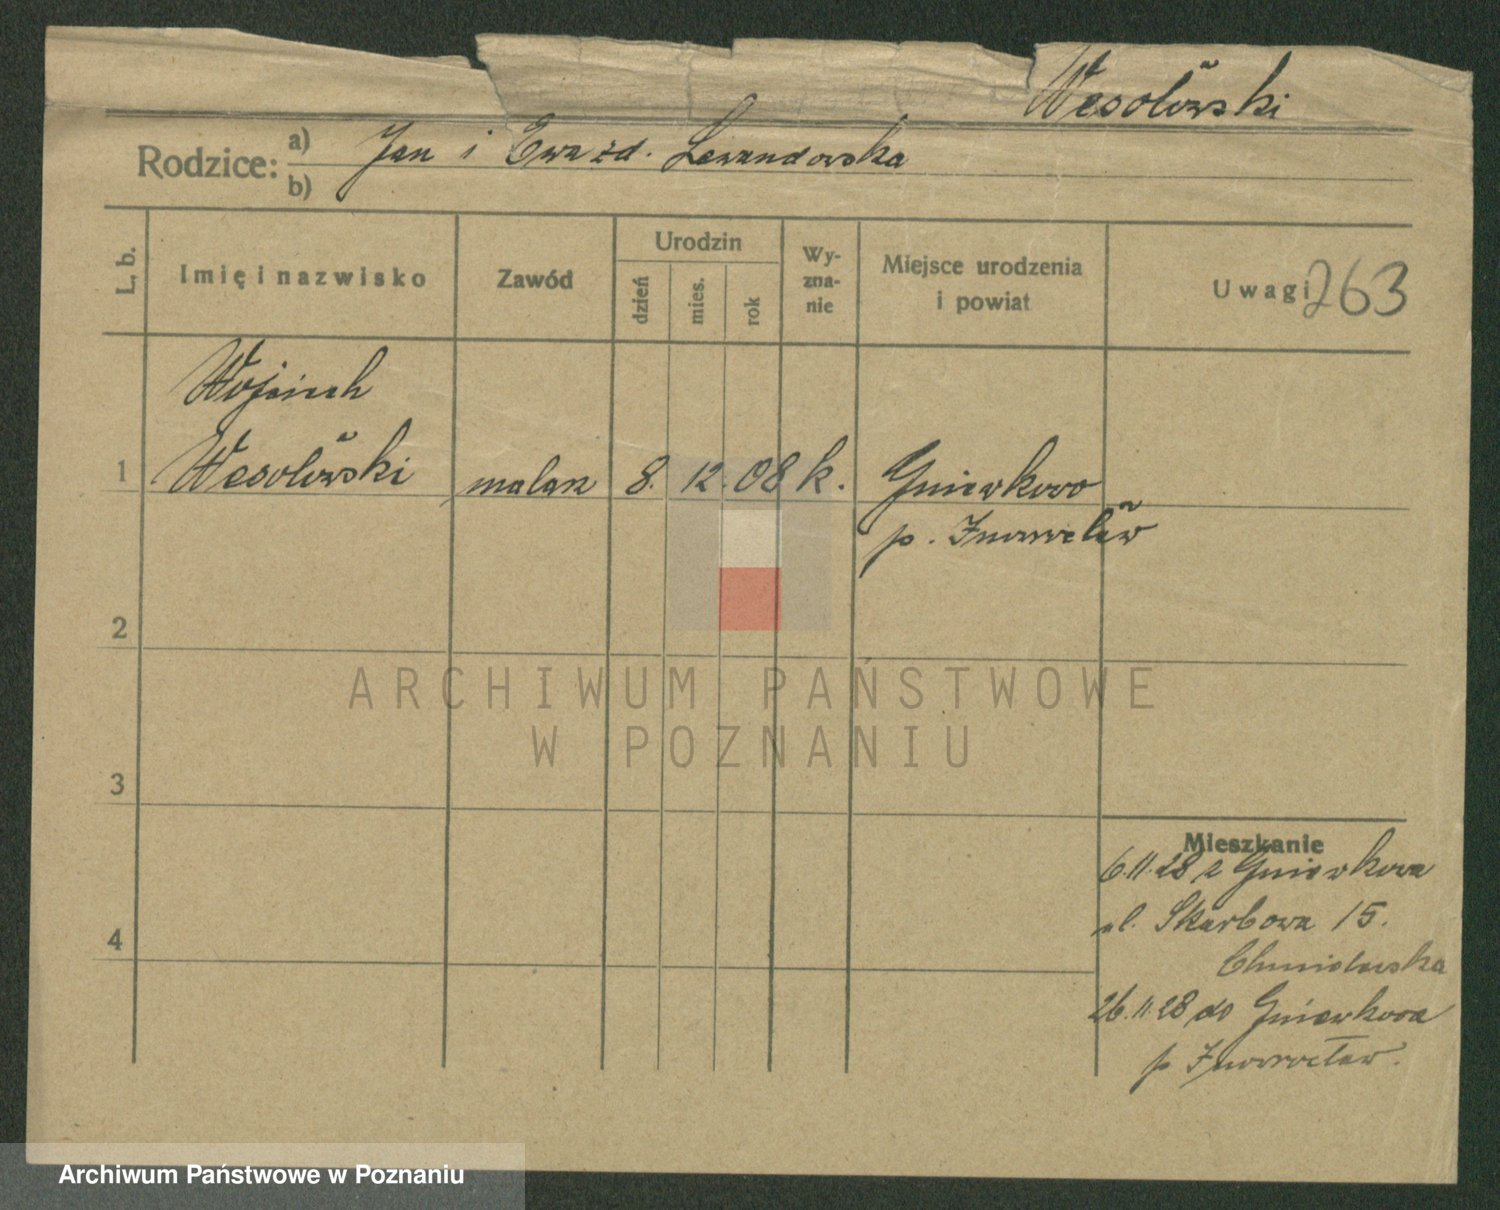 Wesołowski
Rodzice: a) b) Jan i Ewa zd. Lewandowska
L. b.
Imię i nazwisko
Zawód
Urodzin
dzień
mies.
rok
Wy-
zna-
nie
Miejsce urodzenia
i powiat
Uwagi 263
Wojciech
1 Wesołowski malarz 8. 12. 08 k. Gniewkowo
p. Inowrocław
2
3
4
Mieszkanie
6.11.28 z Gniewkowa
ul. Skarbowa 15.
Chmielewska
26.11.28 do Gniewkowa
p Inowrocław.
ARCHIWUM PAŃSTWOWE
W POZNANIU
Archiwum Państwowe w Poznaniu